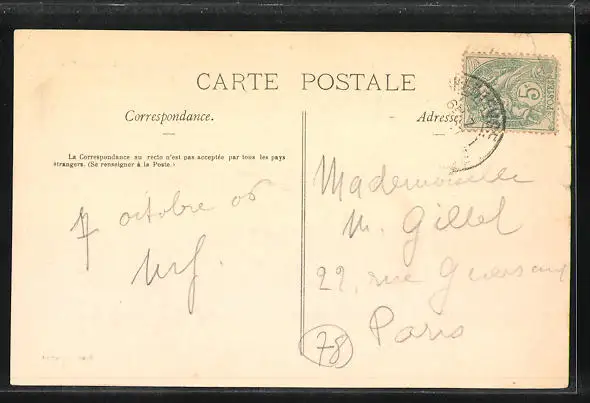 CARTE POSTALE
Correspondance.
Adresse
La Correspondance au recto n'est pas acceptée par tous les pays
étrangers. (Se renseigner à la Poste.)
5
POSTES
7 octobre 06
Mademoiselle
M. Gillet
22, rue Guersant
Paris
78